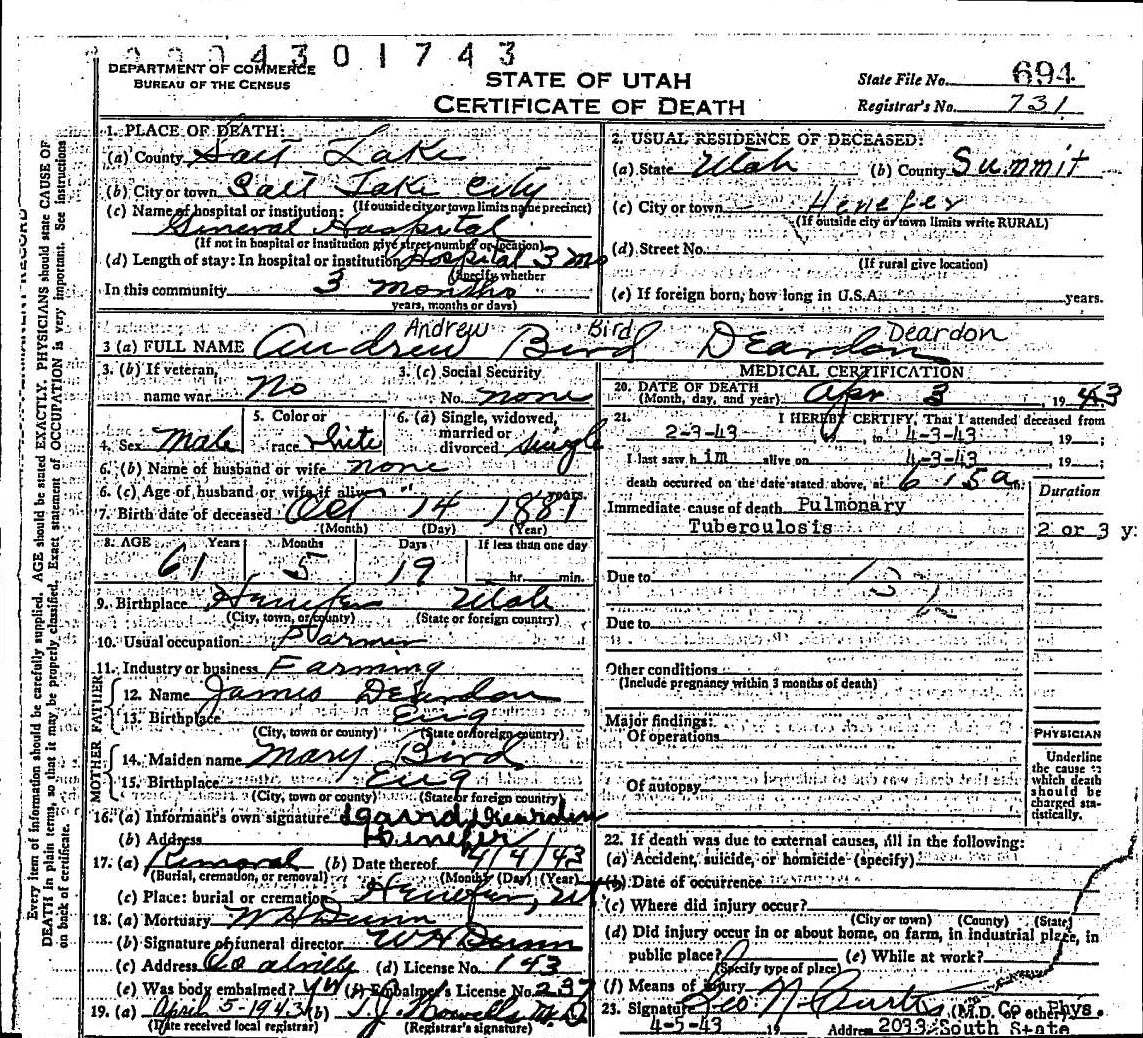 4301743
DEPARTMENT OF COMMERCE
BUREAU OF THE CENSUS
STATE OF UTAH
CERTIFICATE OF DEATH
State File No. 694
Registrar's No. 731
Every item of information should be carefully supplied. AGE should be stated EXACTLY. PHYSICIANS should state CAUSE OF
DEATH in plain terms, so that it may be properly classified. Exact statement of OCCUPATION is very important. See instructions
on back of certificate.
1. PLACE OF DEATH:
(a) County Salt Lake
(b) City or town Salt Lake City
(If outside city or town limits name precinct)
(c) Name of hospital or institution:
General Hospital
(If not in hospital or institution give street number or location)
(d) Length of stay: In hospital or institution Hospital 3 mo
(Specify whether
In this community 3 months
years, months or days)
2. USUAL RESIDENCE OF DECEASED:
(a) State Utah (b) County Summit
(c) City or town Henefer
(If outside city or town limits write RURAL)
(d) Street No.
(If rural give location)
(e) If foreign born, how long in U.S.A. years.
Andrew Bird Deardon
3 (a) FULL NAME Andrew Bird Deardon
3. (b) If veteran, name war No
3. (c) Social Security No. none
4. Sex Male
5. Color or race White
6. (a) Single, widowed, married or divorced single
6. (b) Name of husband or wife none
6. (c) Age of husband or wife if alive " years.
7. Birth date of deceased Oct 14 1881
(Month) (Day) (Year)
8. AGE Years Months Days If less than one day
61 5 19 hr. min.
9. Birthplace Henefer Utah
(City, town, or county) (State or foreign country)
10. Usual occupation
11. Industry or business Farming
FATHER
12. Name James Deardon
13. Birthplace Eng
(City, town or county) (State or foreign country)
MOTHER
14. Maiden name Mary Bird
15. Birthplace Eng
(City, town or county) (State or foreign country)
16. (a) Informant's own signature David Dearden
(b) Address Henefer
17. (a) Removal (b) Date thereof 4/4/43
(Burial, cremation, or removal) (Month) (Day) (Year)
(c) Place: burial or cremation Henefer, Ut
18. (a) Mortuary W H Dunn
(b) Signature of funeral director W H Dunn
(c) Address Coalville (d) License No. 143
(e) Was body embalmed? Yes (f) Embalmer's License No. 237
19. (a) April 5-1943 (b) T.J. Howells M.D.
(Date received local registrar) (Registrar's signature)
MEDICAL CERTIFICATION
20. DATE OF DEATH
(Month, day, and year) Apr 3, 1943
21. I HEREBY CERTIFY, That I attended deceased from
2-3-43, to 4-3-43, 19 ;
I last saw him alive on 4-3-43, 19 ;
death occurred on the date stated above, at 6 15a m.
Duration
Immediate cause of death Pulmonary
Tuberculosis 2 or 3 y.
Due to
Due to
Other conditions
(Include pregnancy within 3 months of death)
Major findings:
Of operations
Of autopsy
PHYSICIAN
Underline
the cause to
which death
should be
charged sta-
tistically.
22. If death was due to external causes, fill in the following:
(a) Accident, suicide, or homicide (specify)
(b) Date of occurrence
(c) Where did injury occur?
(City or town) (County) (State)
(d) Did injury occur in or about home, on farm, in industrial place, in
public place? (e) While at work?
(Specify type of place)
(f) Means of injury
23. Signature Geo N Curtis, (M.D. or other) Co Phys.
4-5-43 19 Address 2033 South State